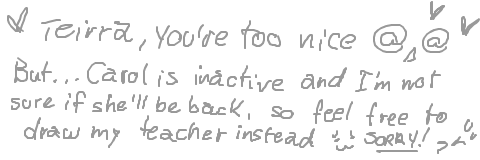 Teirra, you're too nice @△@
But... Carol is inactive and I'm not
sure if she'll be back, so feel free to
draw my teacher instead SORRY! >~<